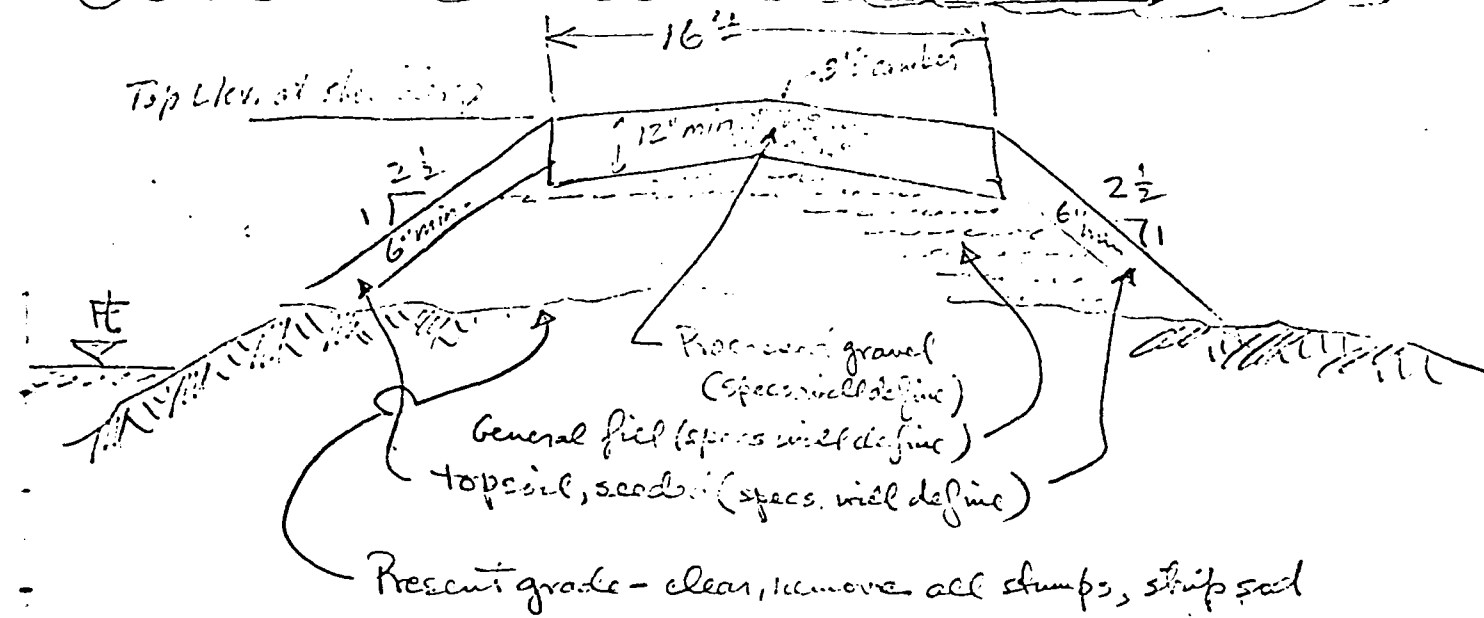 16'±
3" camber
Top Elev. at
12" min.
2 1/2
1
6" min.
2 1/2
6" min
1
gravel
(specs. will define)
General fill (specs will define)
topsoil, seeded (specs. will define)
Present grade - clear, remove all stumps, strip sod